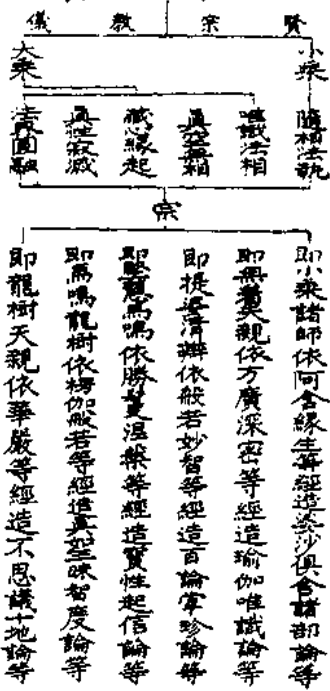 賢宗教儀
小乘
大乘
隨相法執
唯識法相
真空無相
藏心緣起
真性寂滅
法界圓融
宗
即小乘諸師依阿含緣生等經造婆沙俱舍諸部論等
即無著天親依方廣深密等經造瑜伽唯識論等
即提婆清辨依般若妙智等經造百論掌珍論等
即堅慧馬鳴依勝鬘涅槃等經造寶性起信論等
即馬鳴龍樹依楞伽般若等經造真如三昧智度論等
即龍樹天親依華嚴等經造不思議十地論等